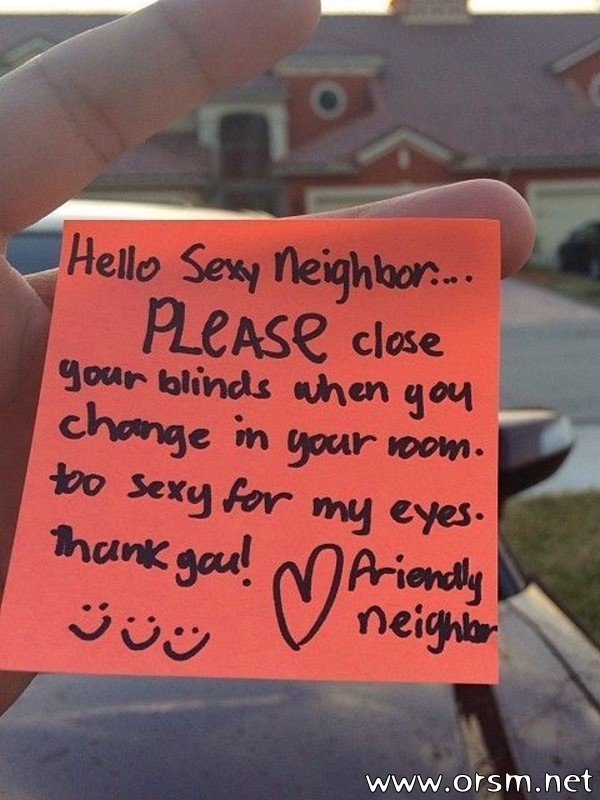 Hello Sexy Neighbor....
PLEASE close
your blinds when you
change in your room.
too sexy for my eyes.
Thank you!
friendly
neighbor
www.orsm.net